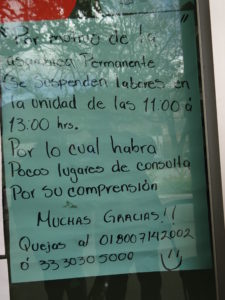 Por motivo de la
asamblea Permanente
Se suspenden labores en
la unidad de las 11:00 á
13:00 hrs.
Por lo cual habra
Pocos lugares de consulta
Por su comprensión
MUCHAS GRACIAS!!
Quejas al 018007142002
ó 33 3030 5000